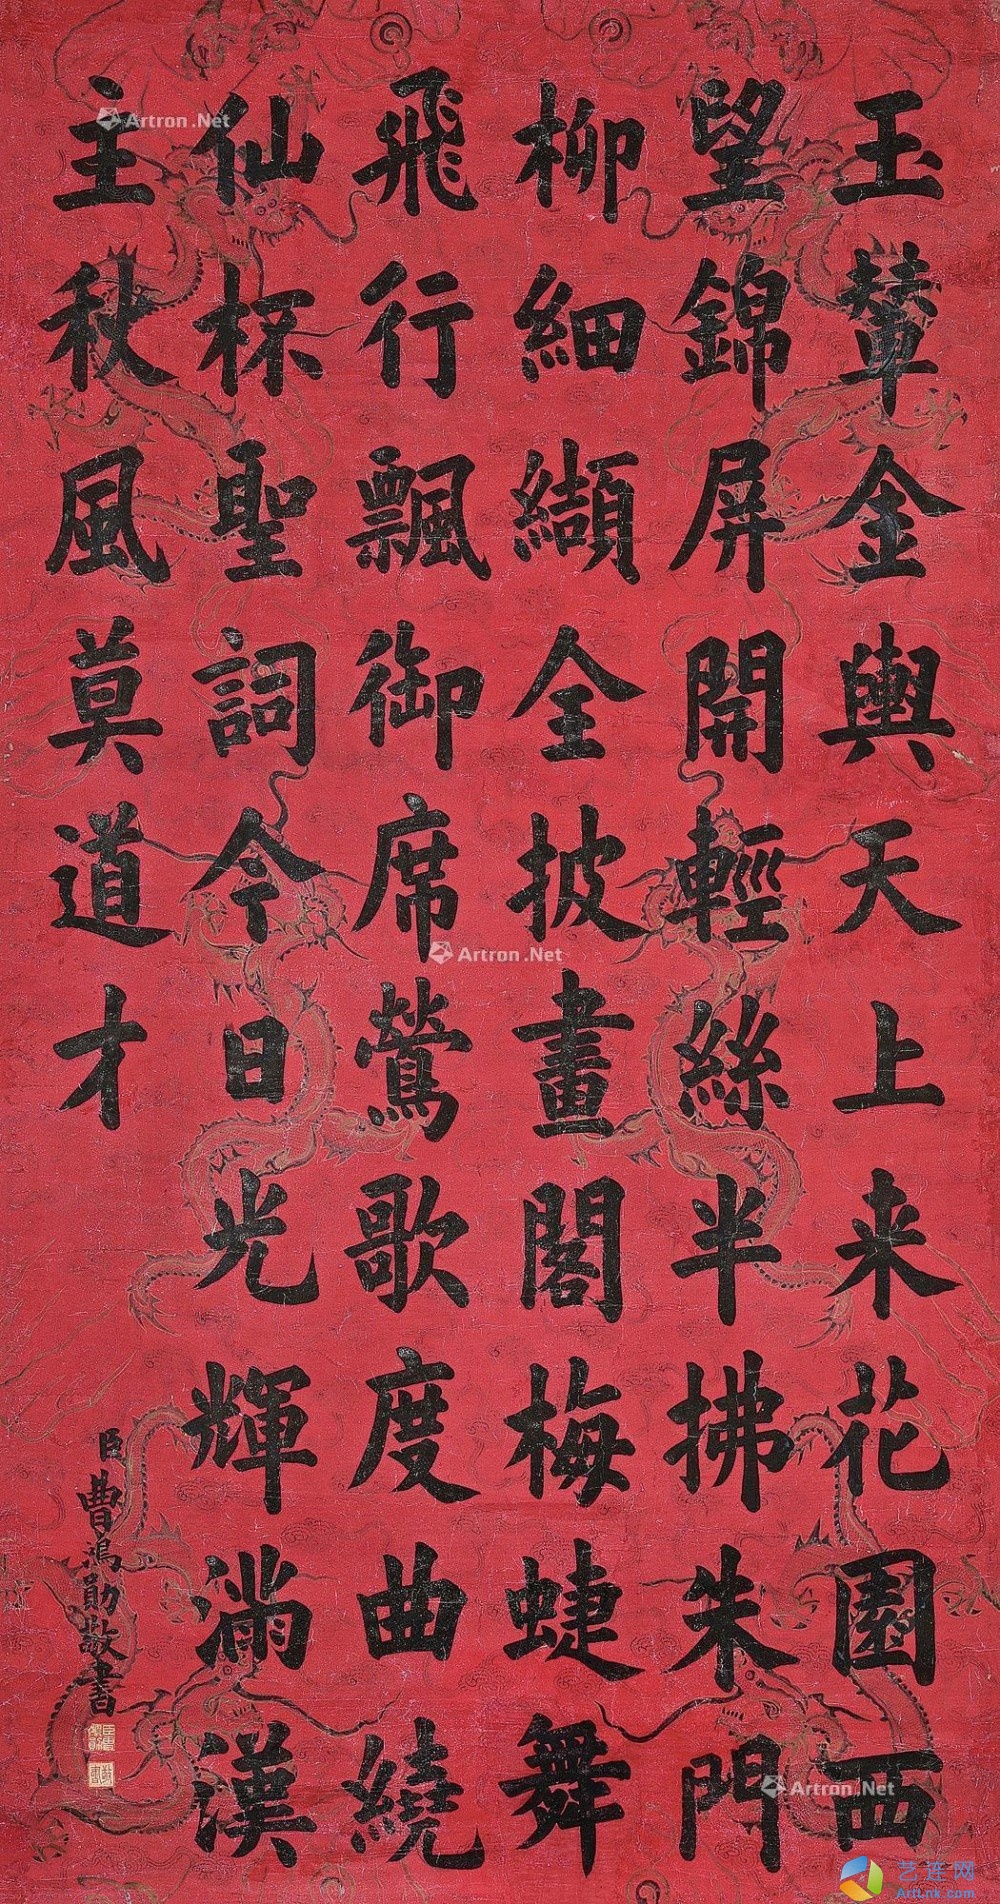 玉輦金輿天上来花園西
望錦屏開輕絲半拂朱門
柳細纈全披畫閣梅蜨舞
飛行飄御席鶯歌度曲繞
仙杯聖詞今日光輝滿漢
主秋風莫道才
臣曹鴻勛敬書
Artron.Net
Artron.Net
Artron.Net
艺连网
ArtLnk.com